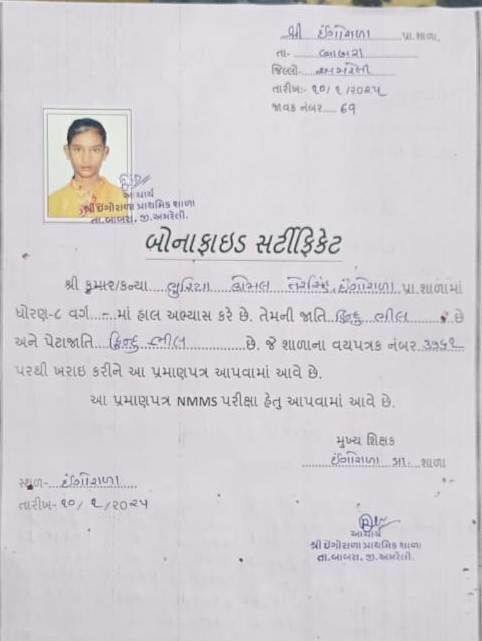 શ્રી ઈંગોરાળા પ્રા.શાળા.
તા.- બાબરા
જિલ્લો- અમરેલી
તારીખ:- ૧૦/૧/૨૦૨૫
જાવક નંબર.... 69
આચાર્ય
શ્રી ઈંગોરાળા પ્રાથમિક શાળા
તા.બાબરા, જી.અમરેલી.
બોનાફાઇડ સર્ટીફિકેટ
શ્રી કુમાર/કન્યા... ભુરિયા કોમલ ઈંગોરાળા પ્રા.શાળામાં
ધોરણ-૮ વર્ગ ...-... માં હાલ અભ્યાસ કરે છે. તેમની જાતિ હિન્દુ ભીલ છે
અને પેટાજાતિ હિન્દુ ભીલ છે. જે શાળાના વયપત્રક નંબર ૩૫૬૧
પરથી ખરાઇ કરીને આ પ્રમાણપત્ર આપવામાં આવે છે.
આ પ્રમાણપત્ર NMMS પરીક્ષા હેતુ આપવામાં આવે છે.
મુખ્ય શિક્ષક
ઈંગોરાળા પ્રા. શાળા
સ્થળ- ઈંગોરાળા
તારીખ- ૧૦/૧/૨૦૨૫
આચાર્ય
શ્રી ઈંગોરાળા પ્રાથમિક શાળા
તા.બાબરા, જી.અમરેલી.